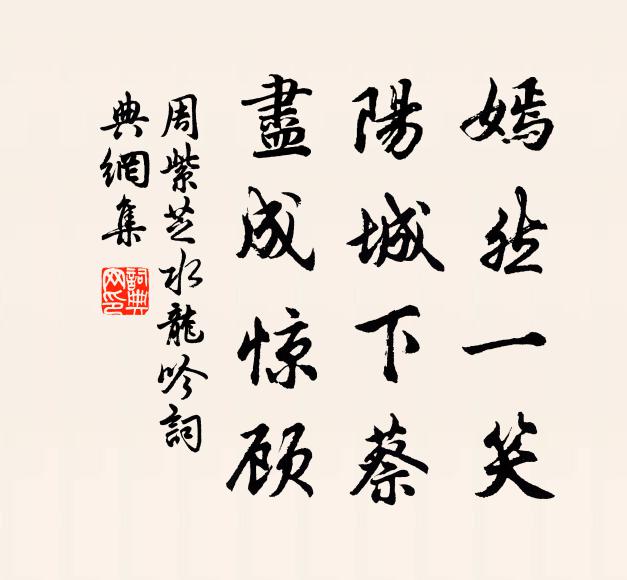 嫣然一笑
陽城下蔡
盡成惊顾
周紫芝水龍吟詞
典網集
詞典網印